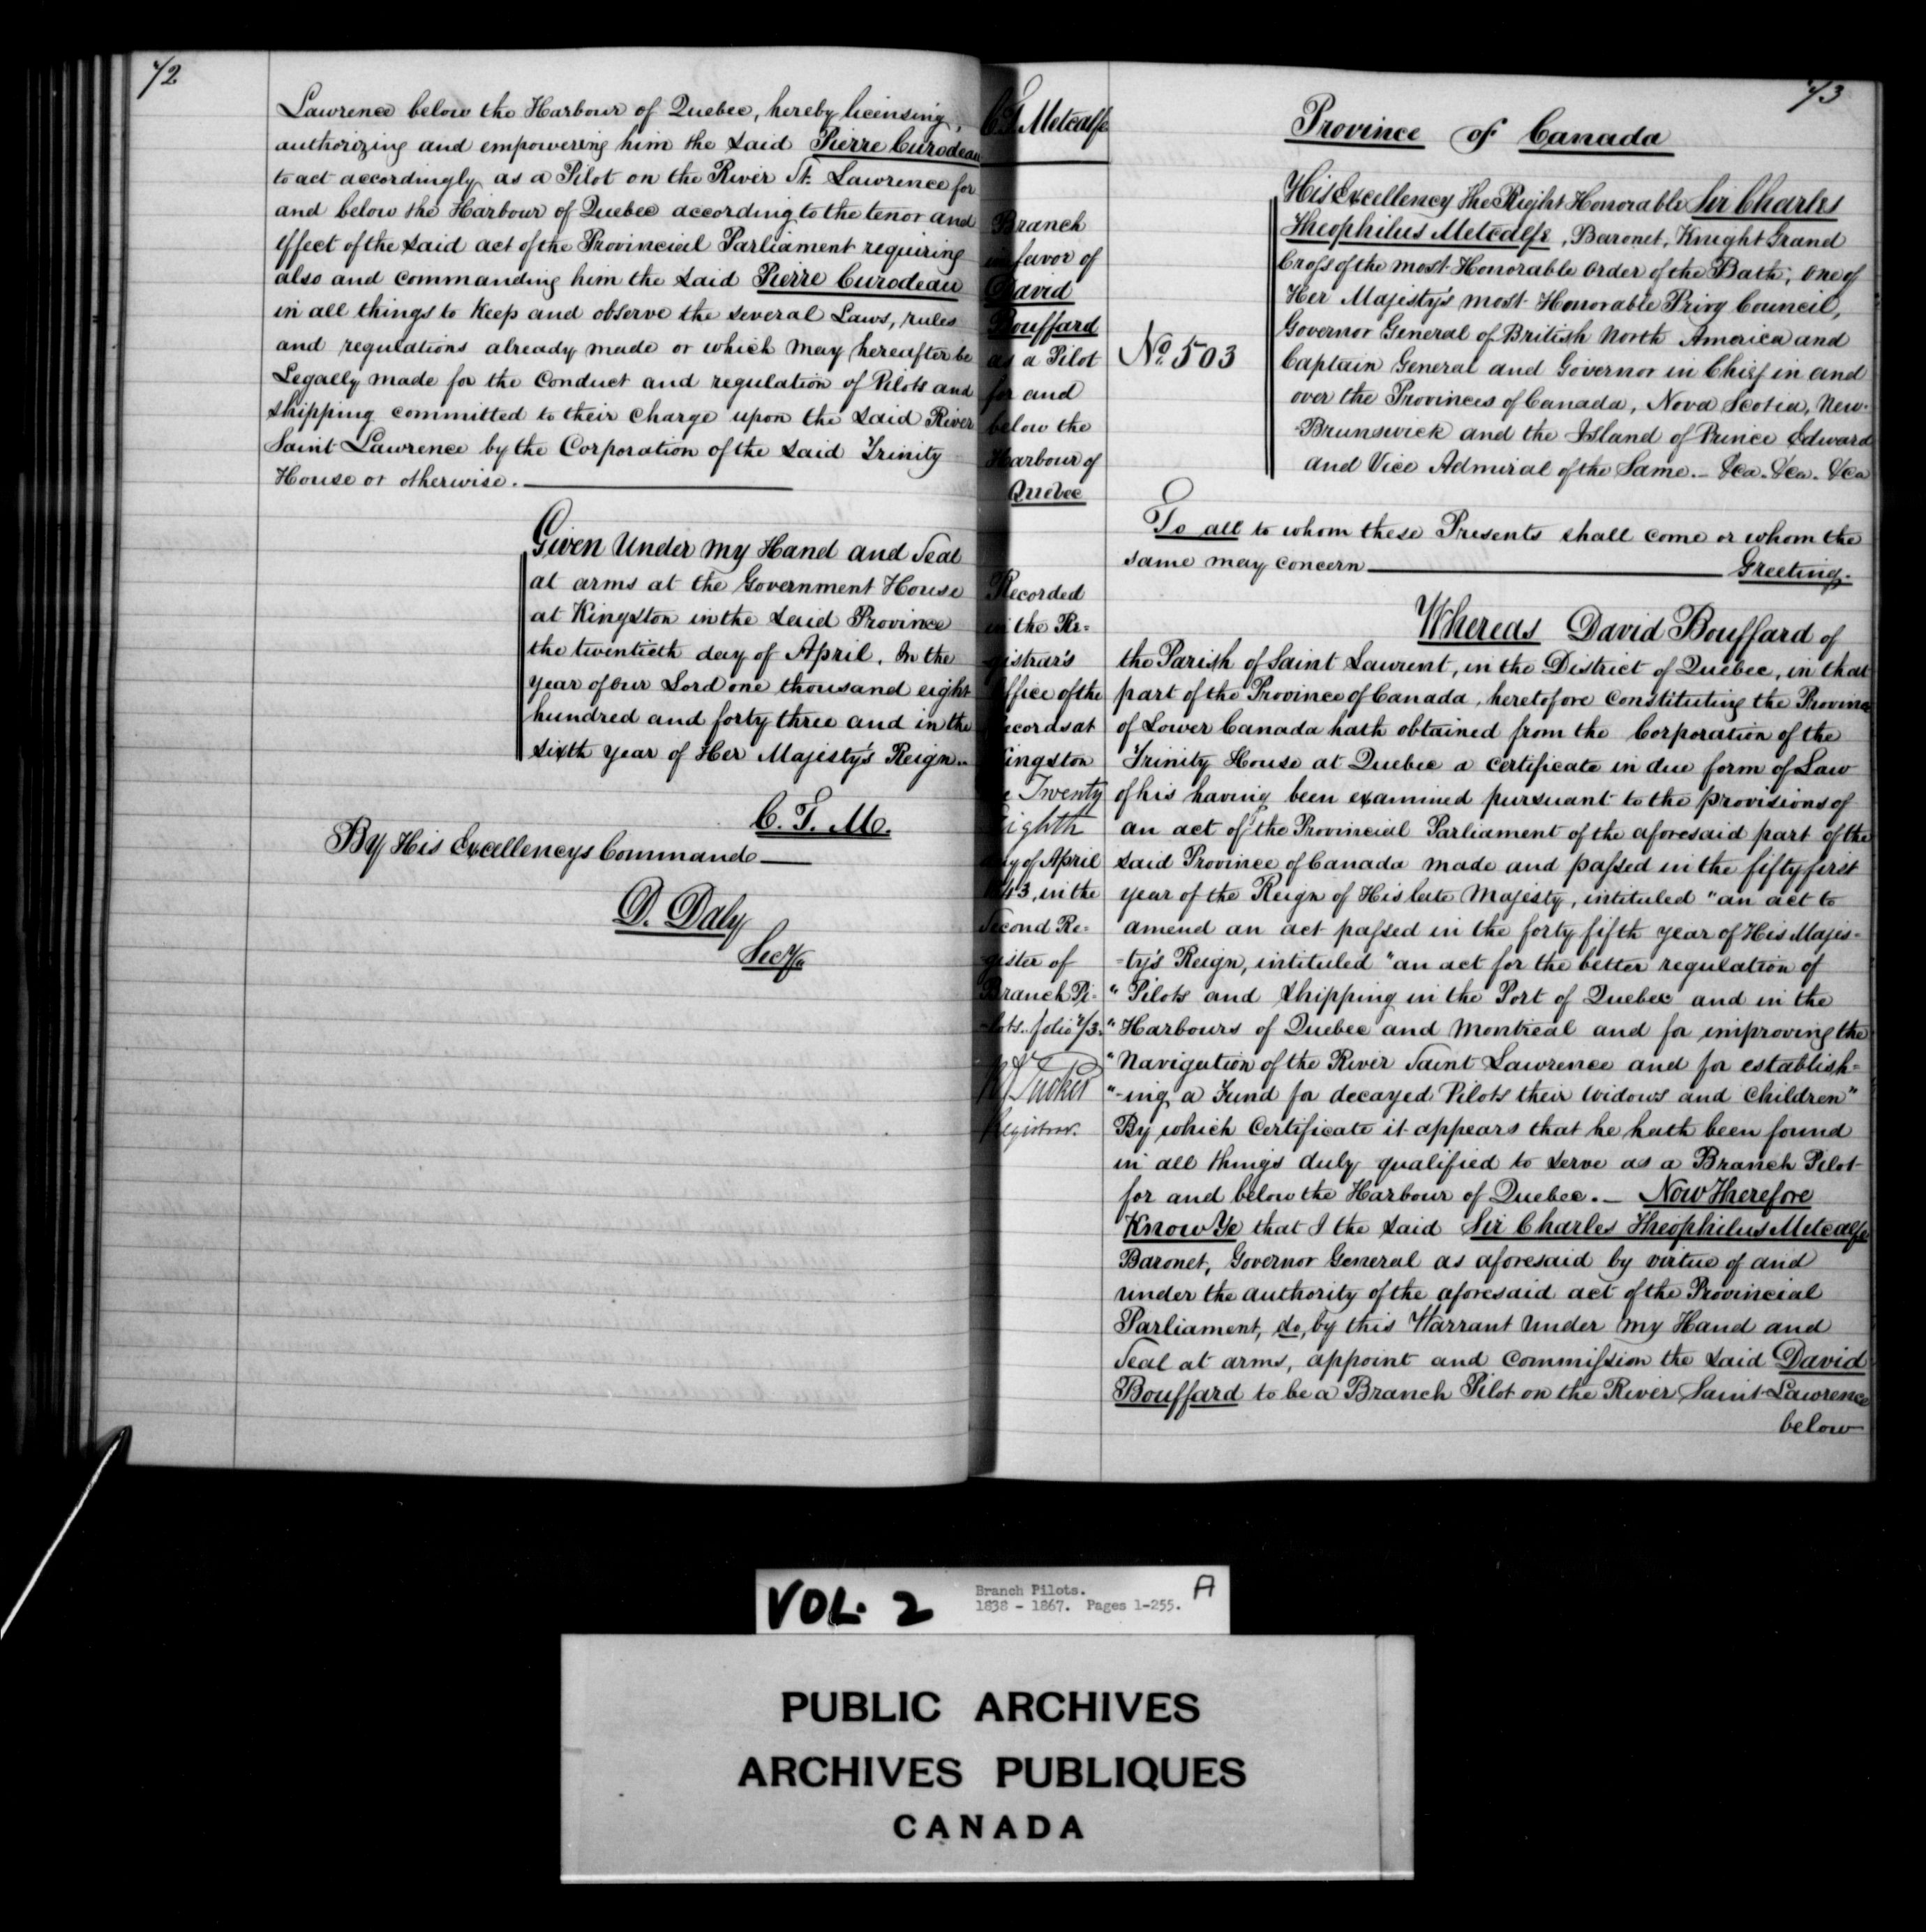 72
Lawrence below the Harbour of Quebec, hereby licensing,
authorizing and empowering him the said Pierre Curodeau
to act accordingly as a Pilot on the River St. Lawrence for
and below the Harbour of Quebec according to the tenor and
effect of the said act of the Provincial Parliament requiring
also and commanding him the said Pierre Curodeau
in all things to keep and observe the several Laws, rules
and regulations already made or which may hereafter be
Legally made for the Conduct and regulation of Pilots and
shipping committed to their charge upon the said River
Saint Lawrence by the Corporation of the said Trinity
House or otherwise.
Given Under my Hand and Seal
at arms at the Government House
at Kingston in the said Province
the twentieth day of April, In the
year of our Lord one thousand eight
hundred and forty three and in the
sixth year of Her Majesty's Reign..
C. T. M.
By His Excellencys Command
D. Daly
Secy
73
C T Metcalfe
Branch
in favor of
David
Bouffard
as a Pilot
for and
below the
Harbour of
Quebec
Recorded
in the Re-
gistrar's
Office of the
Records at
Kingston
Twenty
Eighth
day of April
1843, in the
Second Re-
-gister of
Branch Pi-
-lots.. folio 73.
Tucker
Registrar.
Province of Canada
No. 503
His Excellency The Right Honorable Sir Charles
Theophilus Metcalfe, Baronet, Knight Grand
Cross of the most Honorable Order of the Bath; One of
Her Majesty's most Honorable Privy Council,
Governor General of British North America and
Captain General and Governor in Chief in and
over the Provinces of Canada, Nova Scotia, New-
-Brunswick and the Island of Prince Edward
and Vice Admiral of the Same.- &ca. &ca. &ca
To all to whom these Presents shall come or whom the
same may concern Greeting.
Whereas David Bouffard of
the Parish of Saint Laurent, in the District of Quebec, in that
part of the Province of Canada, heretofore Constituting the Province
of Lower Canada hath obtained from the Corporation of the
Trinity House at Quebec a certificate in due form of Law
of his having been examined pursuant to the provisions of
an act of the Provincial Parliament of the aforesaid part of the
said Province of Canada made and passed in the fifty first
year of the Reign of His late Majesty, intituled "an act to
amend an act passed in the forty fifth year of His Majes-
-ty's Reign, intituled "an act for the better regulation of
" Pilots and Shipping in the Port of Quebec and in the
" Harbours of Quebec and Montreal and for improving the
" Navigation of the River Saint Lawrence and for establish-
"-ing a Fund for decayed Pilots their Widows and Children"
By which Certificate it appears that he hath been found
in all things duly qualified to serve as a Branch Pilot
for and below the Harbour of Quebec.- Now Therefore
Know Ye that I the said Sir Charles Theophilus Metcalfe
Baronet, Governor General as aforesaid by virtue of and
under the authority of the aforesaid act of the Provincial
Parliament, do, by this Warrant Under my Hand and
Seal at arms, appoint and Commission the said David
Bouffard to be a Branch Pilot on the River Saint Lawrence
below
VOL. 2
Branch Pilots.
1838 - 1867. Pages 1-255.
A
PUBLIC ARCHIVES
ARCHIVES PUBLIQUES
CANADA